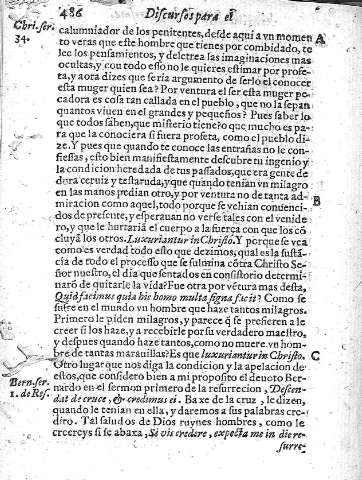 486 Discursos para el
Chri. ser.
34.
calumniador de los penitentes, desde aqui a vn momen A
to veras que este hombre que tienes por combidado, te
lee los pensamientos, y deletrea las imaginaciones mas
ocultas, y con todo esso no le quieres estimar por profe-
ta, y aora dizes que seria argumento de serlo el conocer
esta muger quien sea? Por ventura el ser esta muger pe
cadora es cosa tan callada en el pueblo, que no la sepan
quantos viuen en el grandes y pequeños? Pues saber lo
que todos saben, que misterio tiene? o que mucho es pa-
ra que la conociera si fuera profeta, como el pueblo di-
ze. Y pues que quando te conoce las entrañas no le con-
fiessas, esto bien manifiestamente descubre tu ingenio y
la condicion heredada de tus passados, que era gente de
dura ceruiz y testaruda, y que quando tenian vn milagro
en las manos pedian otro, y por ventura no de tanta ad- B
miracion como aquel, todo porque se vehian conuenci-
dos de presente, y esperauan no verse tales con el venide
ro, y que le hurtaria el cuerpo a la fuerça con que los cõ
cluyà los otros. Luxuriantur in Christo. Y porque se vea
como es verdad todo esto que dezimos, qual es la sustã
cia de todo el processo que se fulmina cõtra Christo Se
ñor nuestro, el dia que sentados en consistorio determi-
narõ de quitarle la vida? Fue otra por vẽtura mas desta,
Quid facimus quia hic homo multa signa facit? Como se
sufre en el mundo vn hombre que haze tantos milagros.
Primero le piden milagros, y parece q̃ se prefieren a le
creer si los haze, y a recebirle por su verdadero maestro,
y despues quando haze tantos, como no muere vn hom-
bre de tantas marauillas? Es que luxuriantur in Christo. C
Otro lugar que nos diga la condicion y la apelacion de
Bern. ser.
1. de Res.
estos, que considero bien a mi proposito el deuoto Ber-
nardo en el sermon primero de la resurrecion, Descen-
dat de cruce, & credimus ei. Baxe de la cruz, le dizen,
quando le tenian en ella, y daremos a sus palabras cre-
dito. Tal salud os de Dios ruynes hombres, como le
creereys si se abaxa, Si vis credere, expecta me in die re-
surre-